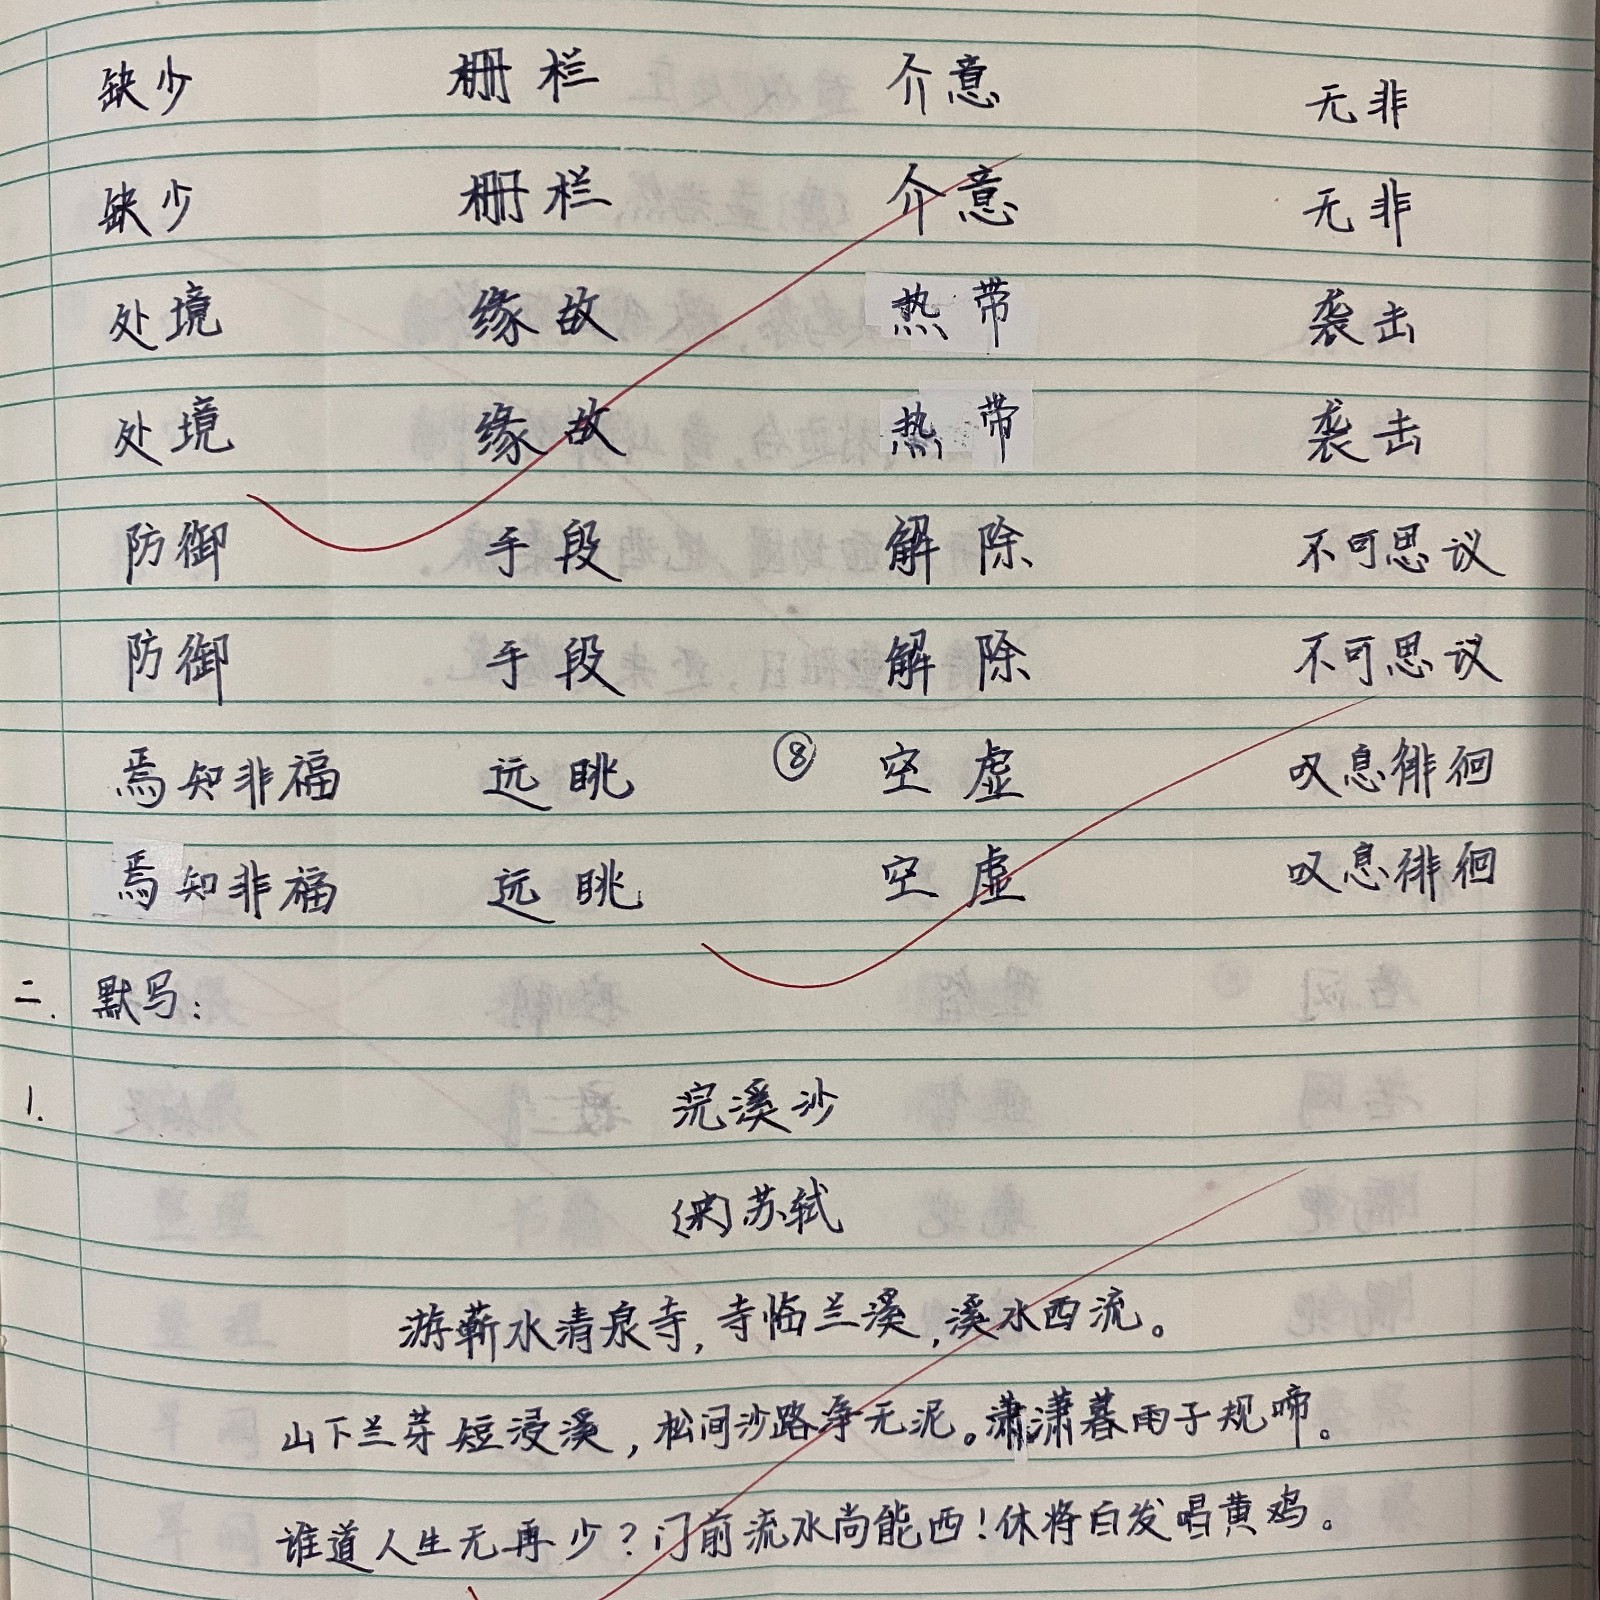 缺少 栅栏 介意 无非
缺少 栅栏 介意 无非
处境 缘故 热带 袭击
处境 缘故 热带 袭击
防御 手段 解除 不可思议
防御 手段 解除 不可思议
焉知非福 远眺 ⑧ 空虚 叹息徘徊
焉知非福 远眺 空虚 叹息徘徊
二. 默写:
1. 浣溪沙
(宋)苏轼
游蕲水清泉寺,寺临兰溪,溪水西流。
山下兰芽短浸溪,松间沙路净无泥。潇潇暮雨子规啼。
谁道人生无再少?门前流水尚能西!休将白发唱黄鸡。